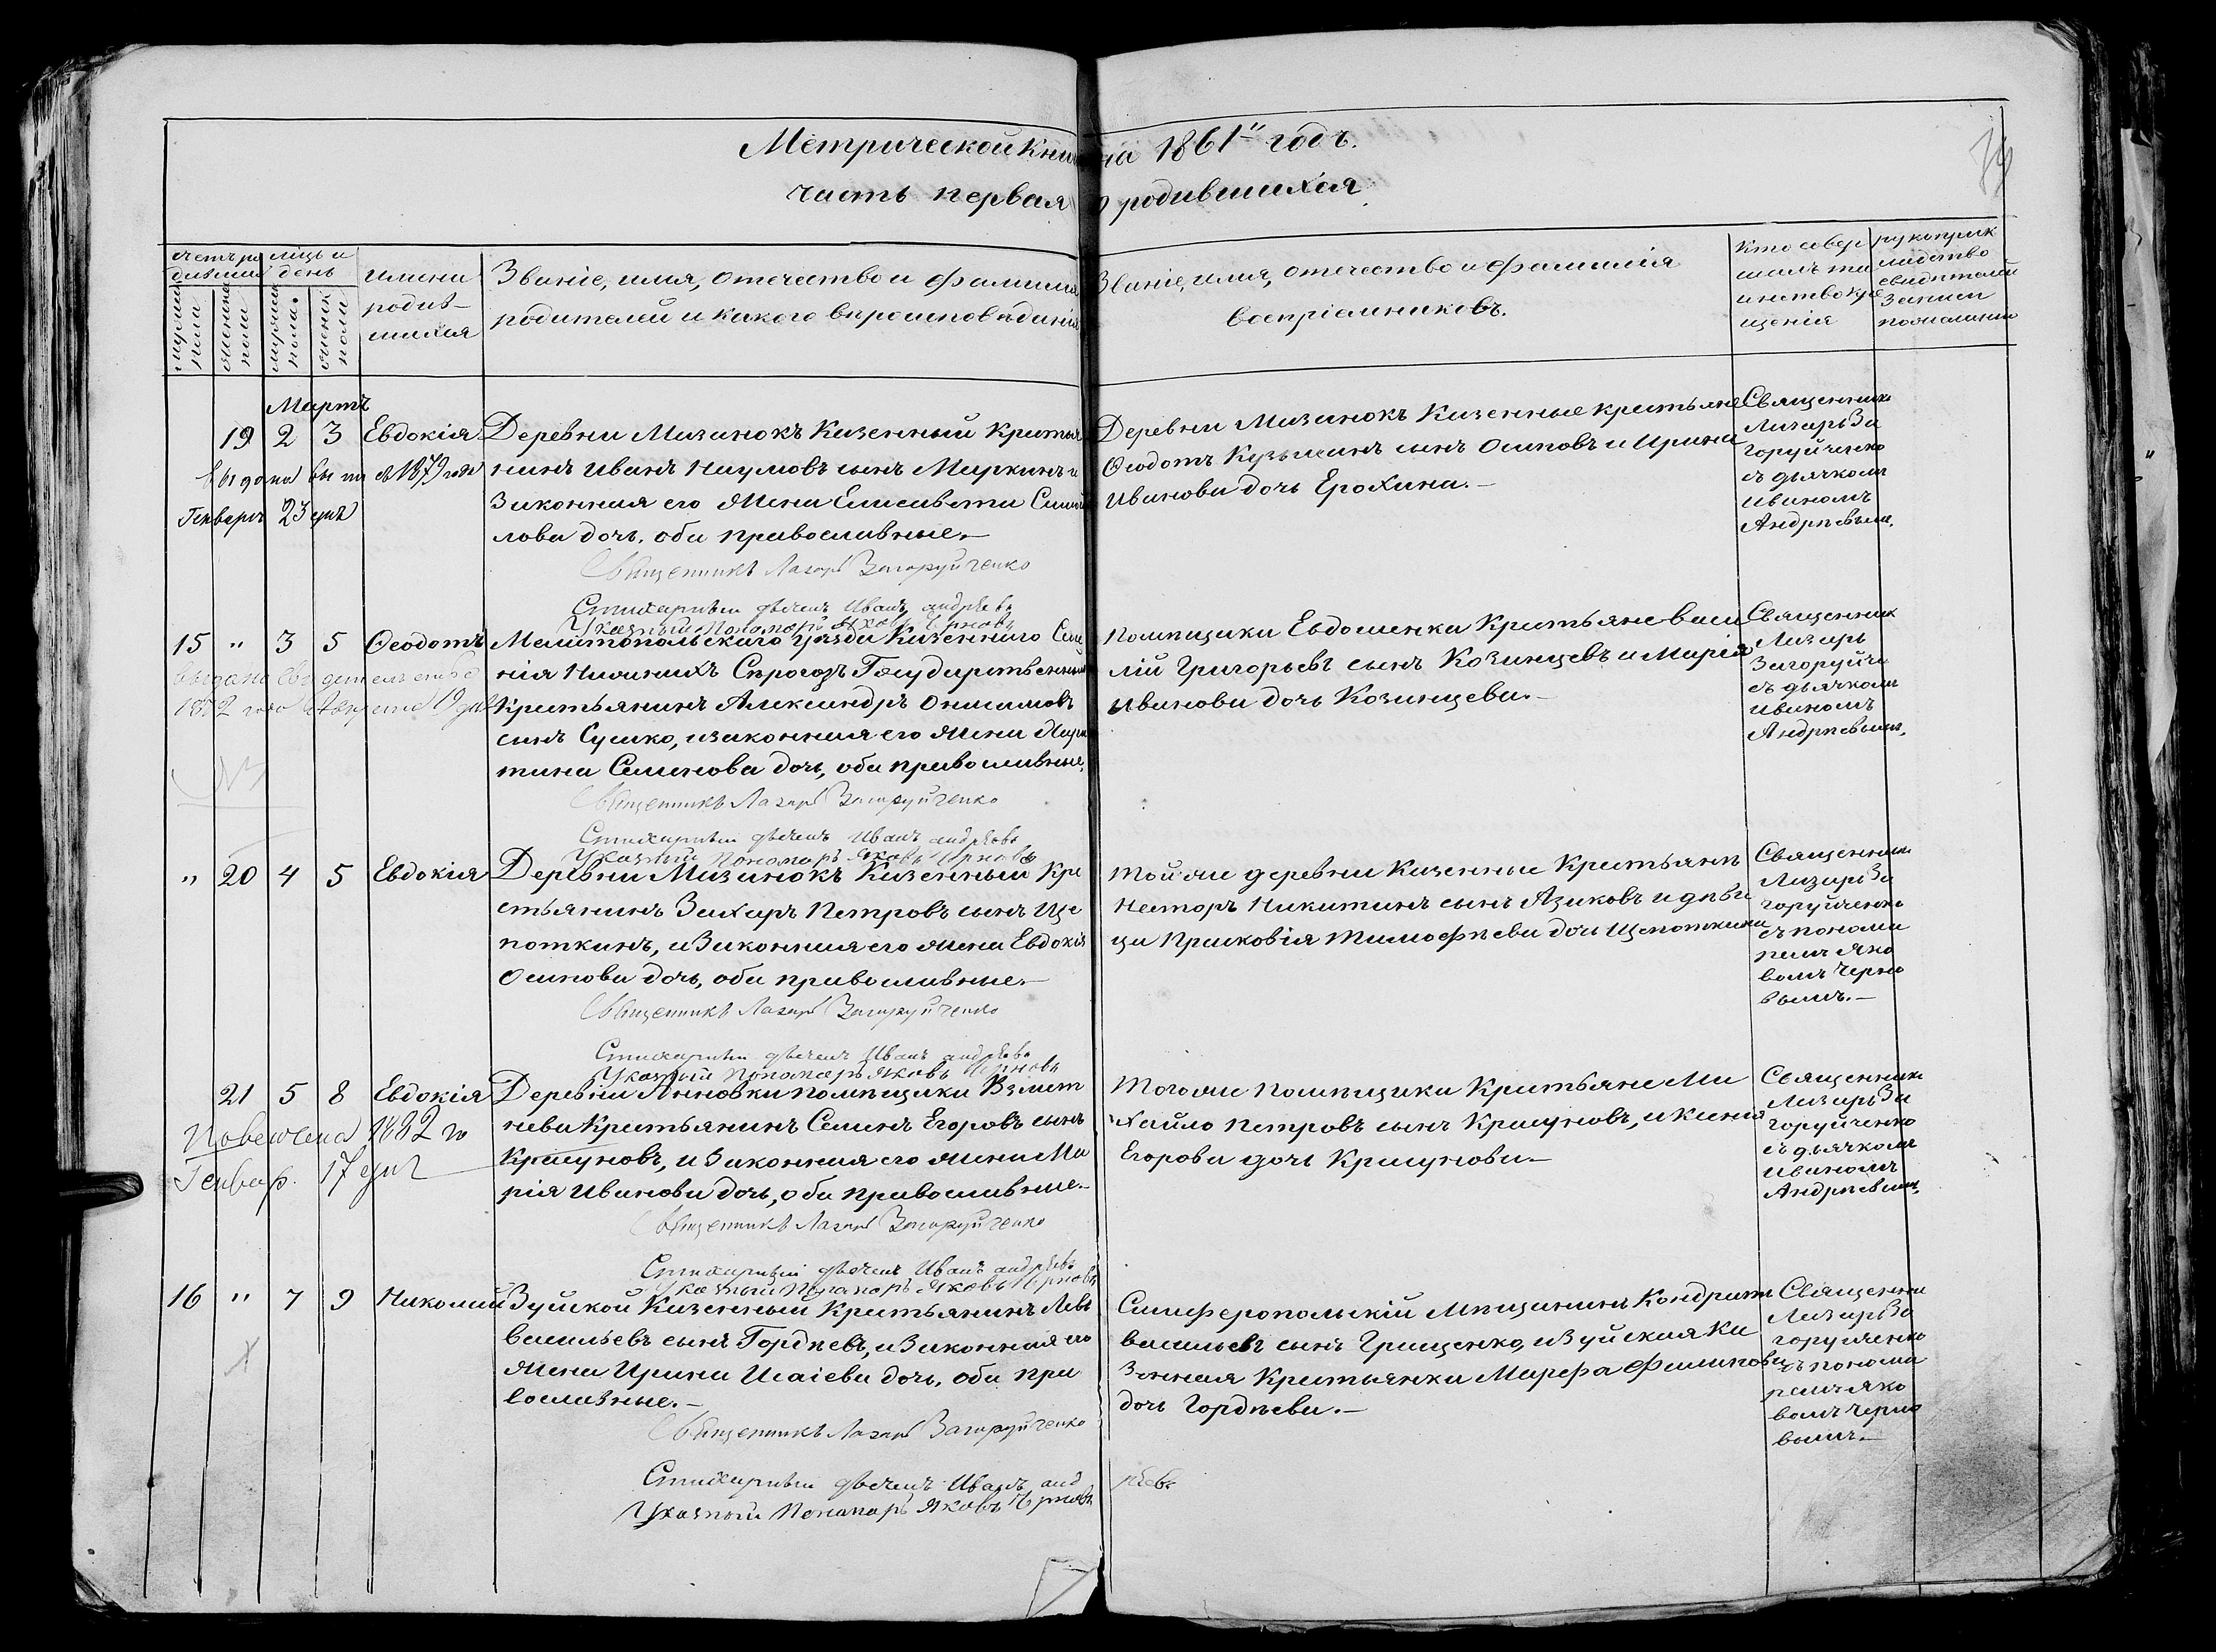 Метрической Книги на 1861" годъ.
часть первая о родившихся.
79
Счетъ ро
дивших
мужеска
пола
женска
пола
мѣсяцъ и
день
имена
родив-
шихся
Званіе, имя, отечество и фамилія
родителей и какого вѣроисповѣданія
Званіе, имя, отечество и фамилія
воспріемниковъ.
Кто совер
шалъ та
инство кре
щенія
рукоприк
ладство
свидѣтелей
записи
по желанію
Мартъ
19 2 3 Евдокія
Деревни Мазанокъ Казенный кресть
нинъ Иванъ Наумовъ сынъ Маркинъ и
Законная его жена Елисавета Самой
лова дочь, оба православные.-
Священникъ Лазарь Загоруйченко
Стихарный дьячекъ Иванъ андрѣевъ
Указный Пономарь Яковъ Чѣрновъ
Деревни Мазанокъ Казенные крестьяне
Ѳеодотъ Кузьминъ сынъ Осиповъ и Ирина
Иванова дочь Ерохина.-
Священникъ
Лазарь За
горуйченко
съ дьячкомъ
Иваномъ
Андрѣевым.
1879 года
Генваря 23 дня
15 " 3 5 Ѳеодотъ
Мелитопольскаго уѣзда Казеннаго Селе
нія Нижнихъ Сѣрогозъ Государственный
Крестьянинъ Александръ Онисимовъ
сынъ Сушко, и законная его жена Хари
тина Семенова дочь, оба православные,
Священникъ Лазарь Загоруйченко
Стихарный дьячекъ Иванъ андрѣевъ
Указный Пономарь Яковъ Чѣрновъ
Помѣщика Евдоменка Крестьяне Васи
лій Григорьевъ сынъ Козинцевъ и Марія
Иванова дочь Козинцева.-
Священник
Лазарь
Загоруйче
съ дьячкомъ
Иваномъ
Андрѣевым.
Выдано Свидетельство
1872 года 19 дня
" 20 4 5 Евдокія
Деревни Мазанокъ Казенный Кре
стьянинъ Захаръ Петровъ сынъ Ще
поткинъ, и Законная его жена Евдокія
Осипова дочь, оба православные.-
Священникъ Лазарь Загоруйченко
Стихарный дьячекъ Иванъ андрѣевъ
Указный Пономарь Яковъ Чѣрновъ
Той же деревни Казенные Крестьяне
Несторъ Никитинъ сынъ Азиковъ и дѣви
ца Прасковія Тимофѣева дочь Щепоткина
Священник
Лазарь За
горуйченко
съ понома
ремъ Яко
вомъ Черно
вымъ.-
21 5 8 Евдокія
Деревни Анновки помѣщика Взмет
нева Крестьянинъ Семенъ Егоровъ сынъ
Крашуновъ, и Законная его жена Ма
рія Иванова дочь, оба православные.-
Священникъ Лазарь Загоруйченко
Стихарный дьячекъ Иванъ андрѣевъ
Указный Пономарь Яковъ Чѣрновъ
Тогоже помѣщика Крестьяне Ми
хайло Петровъ сынъ Крашуновъ, и Ксенія
Егорова дочь Крашунова.-
Священник
Лазарь За
горуйченко
съ дьячкомъ
Иваномъ
Андрѣевым.
Повенчена 1882 го
Генвар. 17 дня
16 " 7 9 Николай
Зуйской Казенный Крестьянинъ Левъ
Васильевъ сынъ Гордѣевъ, и Законная его
жена Ирина Исаіева дочь, оба пра
вославные.-
Священникъ Лазарь Загоруйченко
Стихарный дьячекъ Иванъ андрѣевъ
Указный Пономарь Яковъ Чѣрновъ
Симферопольскій мѣщанинъ Кондратъ
Васильевъ сынъ Грищенко, и Зуйская Ка
зенная Крестьянка Марфа Филипова
дочь Гордѣева.-
Священник
Лазарь За
горуйченко
съ понома
ремъ Яко
вомъ Черно
вымъ.-